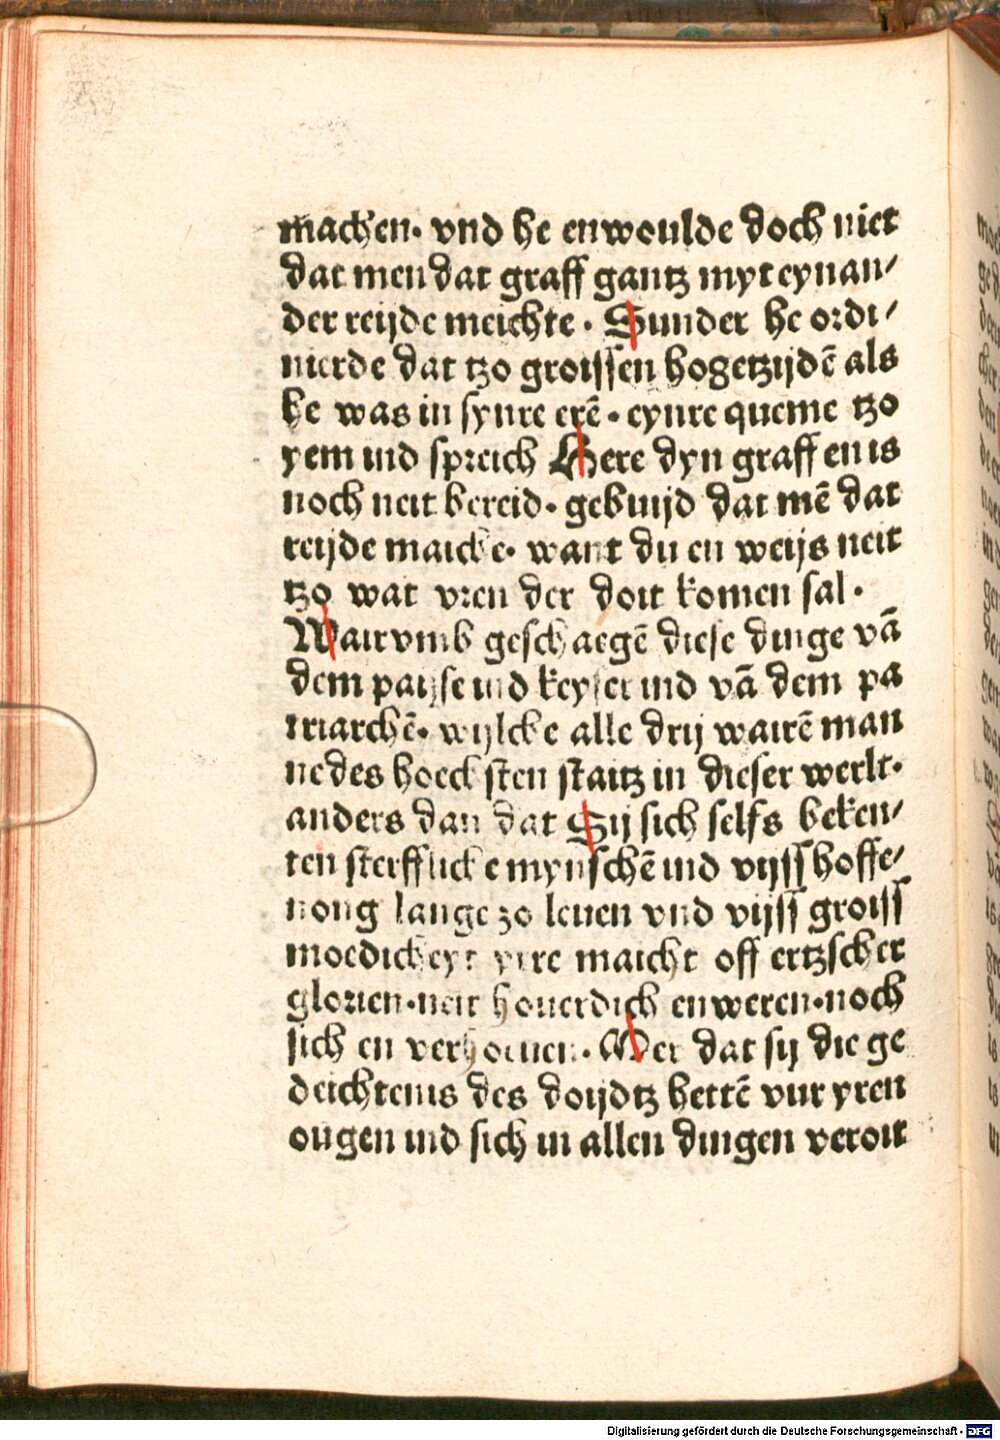 machen· vnd he enwoulde doch niet
dat men dat graff gantz myt eynan/
der reijde meichte · Sunder he ordi/
nierde dat tzo groissen hogetzijdē als
he was in synre erē · eynre queme tzo
yem ind spreich Here dyn graff en is
noch neit bereid· gebuijd dat mē dat
reijde maicke· want du en weijs neit
tzo wat vren der doit komen sal ·
Wair vmb geschaegē diese dinge vā
dem paijse ind keyser ind vā dem pa
triarchē· wijlcke alle drij wairē man
ne des hoecksten staitz in dieser werlt·
anders dan dat Sij sich selfs beken/
ten sterfflicke mynschē ind vijss hoffe/
nong lange zo leuen vnd vijss groiss
moedickeyt yrre maicht off ertzscher
glorien·neit houerdich enweren·noch
sich en verhoeuen · Mer dat sij die ge
deichtenis des doijdtz hettē vur yren
ougen ind sich in allen dingen veroit
Digitalisierung gefördert durch die Deutsche Forschungsgemeinschaft - DFG